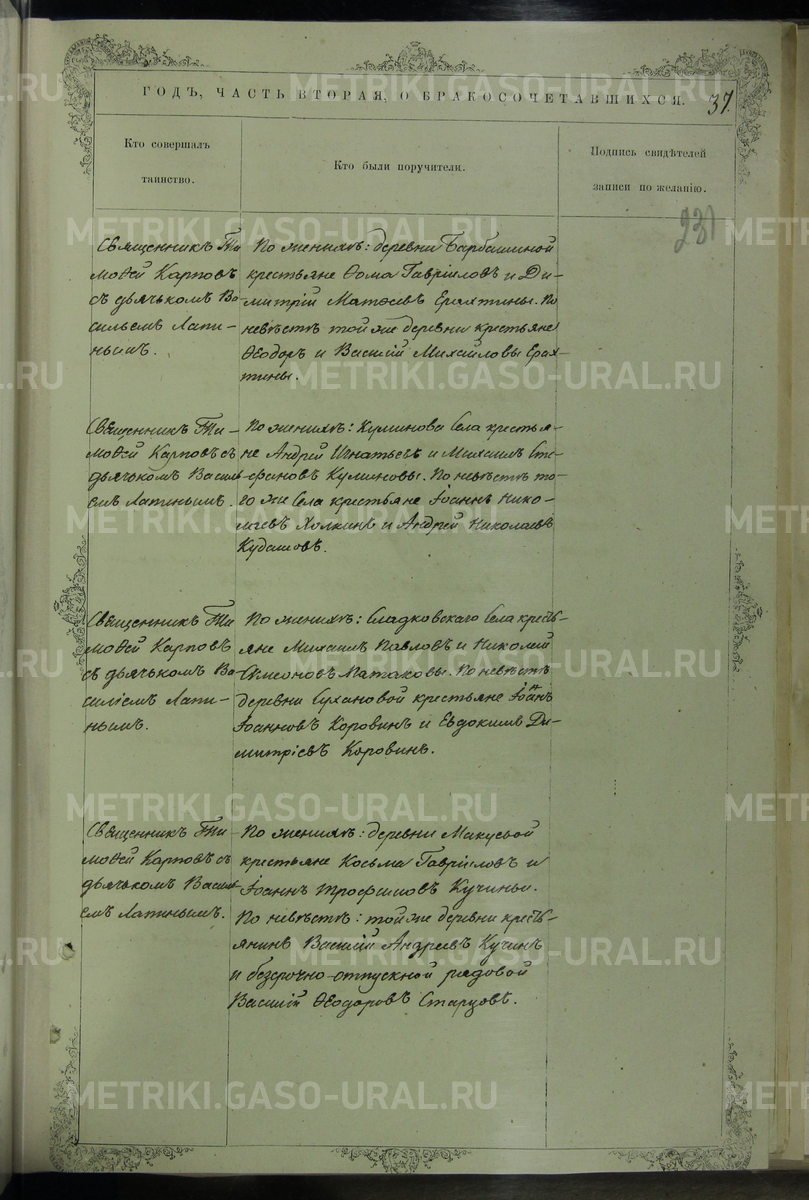 ГОДЪ, ЧАСТЬ ВТОРАЯ, О БРАКОСОЧЕТАВШИХСЯ.
37.
Кто совершалъ
таинство.
Кто были поручители.
Подпись свидѣтелей
записи по желанію.
231
Священникъ Ти-
моѳей Карповъ
съ дьячькомъ Ва-
сильемъ Лапи-
нымъ.
По женихѣ: деревни Барбашиной
крестьяне Ѳома Гавріиловъ и Ди-
митрій Матѳеевъ Ерахтины. По
невѣстѣ той же деревни крестьяне
Ѳеодоръ и Василій Михайловы Ерах-
тины.
Священникъ Ти-
моѳей Карповъ съ
дьячькомъ Васильемъ
Лапинымъ.
По женихѣ: Куминова Села крестья-
не Андрей Игнатьевъ и Михаилъ Сте-
фановъ Кулиновы. По невѣстѣ то-
го же Села крестьяне Іоаннъ Нико-
лаевъ Холкинъ и Андрей Николаевъ
Кудашовъ.
Священникъ Ти-
моѳей Карповъ
съ дьячькомъ Ва-
силіемъ Лапи-
нымъ.
По женихѣ: Сладковскаго Села кресть-
яне Михаилъ Павловъ и Николай
Симеоновъ Патаковы. По невѣстѣ
деревни Сухановой крестьяне Іоаннъ
Іоанновъ Коровинъ и Евдокимъ Ди-
митріевъ Коровинъ.
Священникъ Ти-
моѳей Карповъ съ
дьячькомъ Василь-
емъ Лапинымъ.
По женихѣ: деревни Макуевой
крестьяне Косьма Гавріиловъ и
Іоаннъ Трофимовъ Кучины.
По невѣстѣ: той же деревни кресть-
янинъ Василій Андреевъ Кучинъ
и безсрочно-отпускной рядовой
Василій Ѳеодоровъ Старцовъ.
METRIKI.GASO-URAL.RU